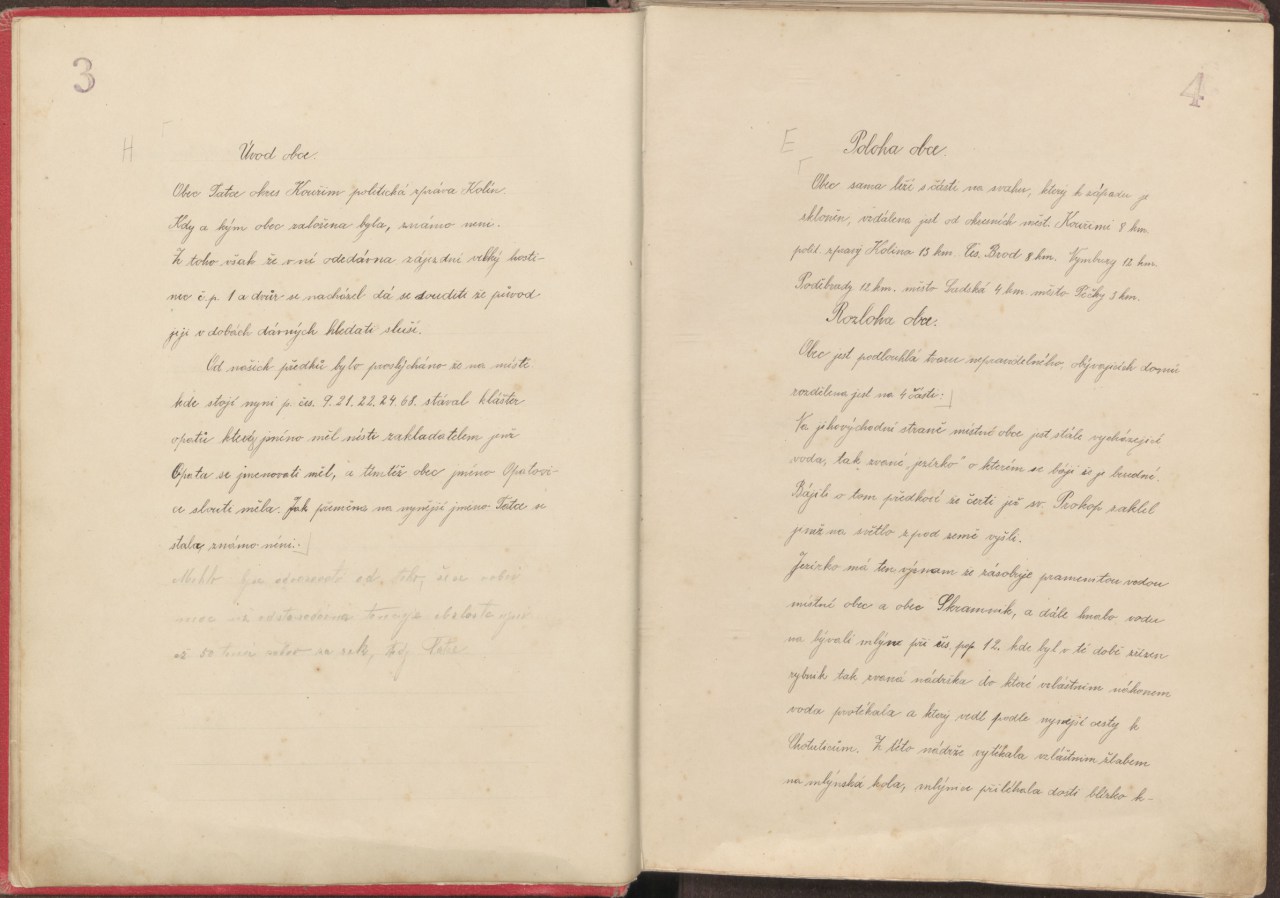 3
H
Úvod obce.
Obec Tatce okres Kouřim politická zpráva Kolín.
Kdy a kým obec založena byla, známo neni.
Z toho však že v ní odedávna zájezdní velký hosti-
nec č.p. 1 a dvůr se nacházel dá se souditi že původ
její v dobách dávných hledati sluší.
Od našich předků bylo proslýcháno že na místě
kde stojí nyní p. čís. 9. 21. 22. 24. 68. stával klášter
opatů který jméno měl nésti zakladatelem jenž
Opata se jmenovati měl, a tímtéž obec jméno Opatovi-
ce slouti měla. Jak přeměna na nynější jmeno Tatce se
stala, známo néni.
4
E
Poloha obce.
Obec sama leží s části na svahu, který k západu je
skloněn, vzdálena jest od okresních měst. Kouřimi 8 km.
polit. zpravy Kolína 15 km. Čes. Brod 8 km. Nymburg 12 km.
Poděbrady 12 km. místo Sadská 4 km. město Pečky 3 km.
Rozloha obce.
Obec jest podlouhlá tvaru nepravidelného, obývajících domů
rozdělena jest na 4 části.
Na jihovýchodní straně místné obce jest stále vycházející
voda, tak zvané „jezírko" o kterém se bájí že je bezedné.
Bájili o tom předkové že čerti jež sv. Prokop zaklel
jimž na světlo zpod země vyšli.
Jezírko má ten význam že zásobuje pramenitou vodou
místné obec a obec Skramník, a dále hnalo vodu
na bývalí mlýn při čís. pop 12. kde byl v té době zřízen
rybník tak zvaná nádržka do které vzláštním náhonem
voda protékala a který vedl podle nynejší cesty k
Chotuticům. Z této nádrže vytékala vzláštním žlabem
na mlýnská kola, mlýnice přiléhala dosti blízko k-